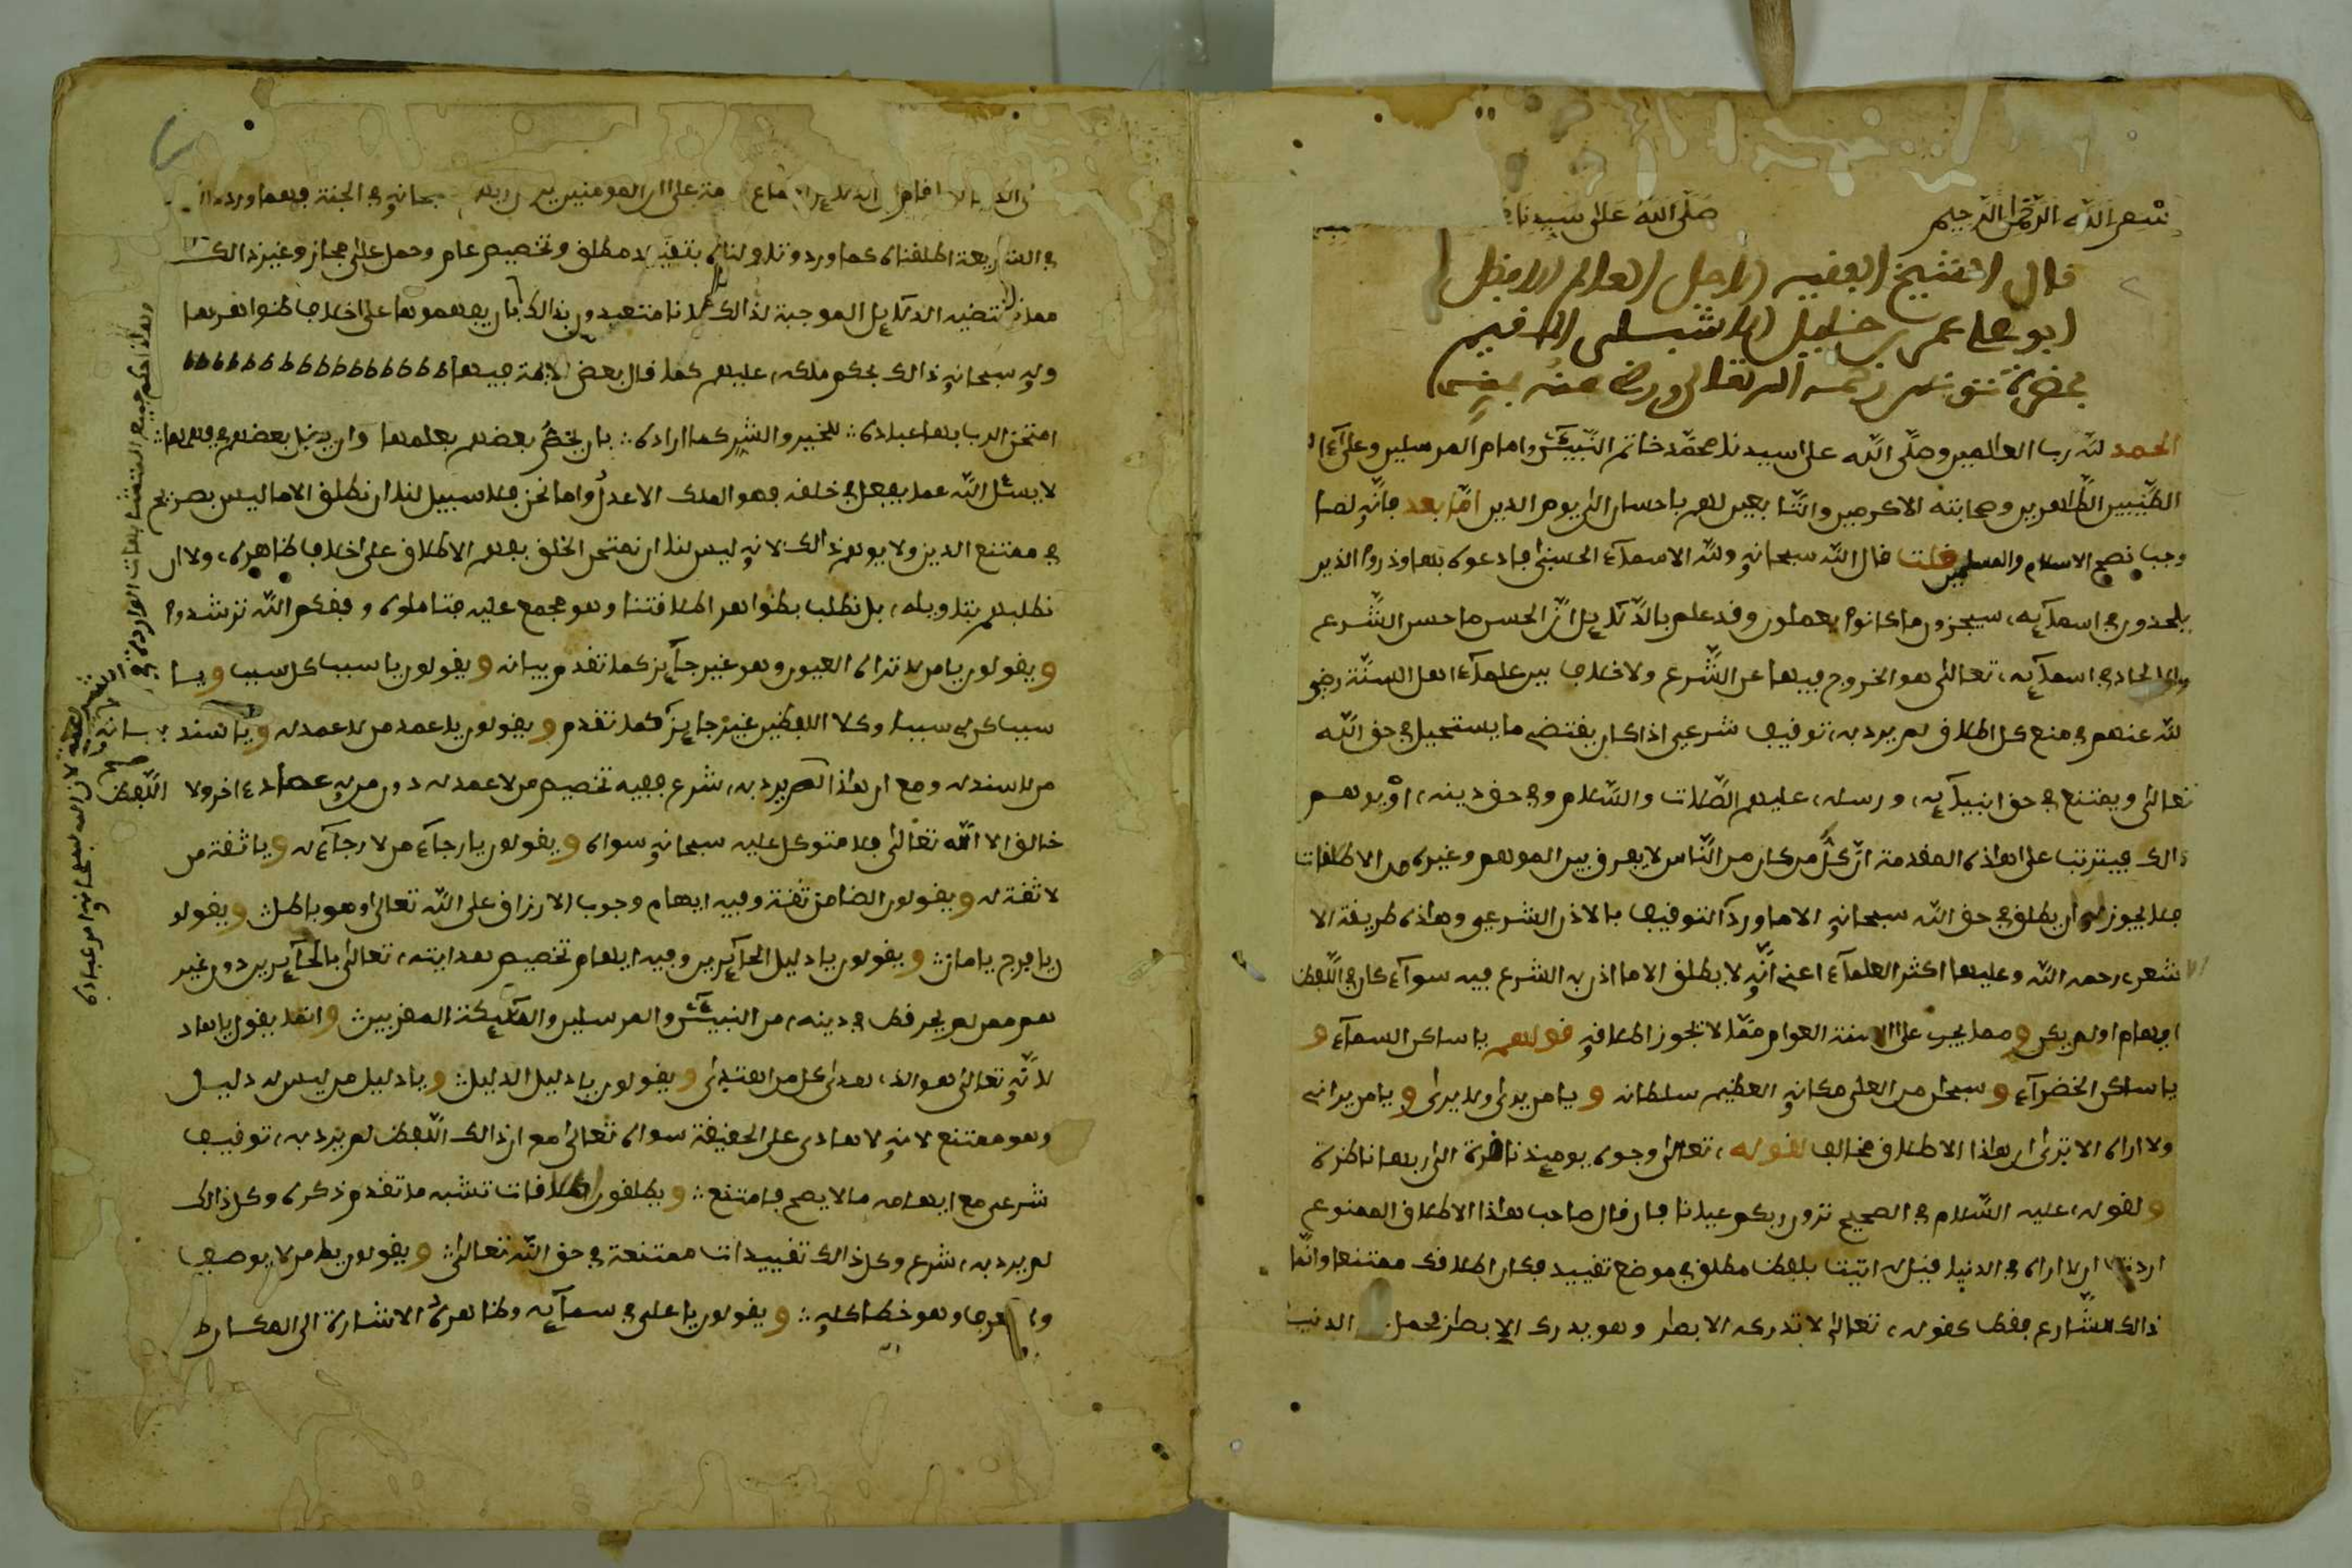 بسم الله الرحمن الرحيم صلى الله على سيدنا
قال الشيخ الفقيه الاجل العالم الافضل
ابو علي عمر بن خليل الاشبيلي المقيم
بحضرة تونس رحمه الله تعالى ورضي عنه بمنه
الحمد لله رب العالمين وصلى الله على سيدنا محمد خاتم النبيئين وامام المرسلين وعلى ءاله
الطيبين الطاهرين وصحابته الاكرمين والتابعين لهم باحسان الى يوم الدين اما بعد فانه لما
وجب نصح الاسلام والمسلمين قلت قال الله سبحانه ولله الاسماء الحسنى فادعوه بها وذروا الذين
يلحدون في اسمآيه سيجزون ما كانوا يعملون وقد علم بالدلايل ان الحسن ما حسن الشرع
وان الالحاد في اسمآيه تعالى هو الخروج فيها عن الشرع ولا خلاف بين علمآء اهل السنة رضي
الله عنهم في منع كل اطلاق لم يرد به توقيف شرعي اذا كان يقتضي ما يستحيل في حق الله
تعالى ويمتنع في حق انبيآيه ورسله عليهم الصلاة والسلام وفي حق دينه او يوهم
ذالك فيترتب على هاذه المقدمة ان كل من كان من الناس لا يعرف بين الموهم وغيره من الاطلاقات
فلا يجوز له ان يطلق في حق الله سبحانه الا ما ورد التوقيف بالاذن الشرعي وهاذه طريقة الا
شعري رحمه الله وعليها اكثر العلمآء اعني انه لا يطلق الا ما اذن به الشرع فيه سوآء كان في اللفظ
ايهام او لم يكن ومما يجري على السنة العوام مما لا تجوز اطلاقه قولهم يا ساكن السمآء و
يا ساكن الخضرآء وسبحان من العلى مكانه العظيم سلطانه ويا من يرى ولا يرى ويا من يراني
ولا اراه الا ترى ان هاذا الاطلاق مخالف لقوله تعالى وجوه يوميذ ناضرة الى ربها ناظرة
ولقوله عليه السلام في الصحيح ترون ربكم عيانا فان قال صاحب هاذا الاطلاق الممنوع
اردت ان لا اراه في الدنيا قيل له اتيت بلفظ مطلق في موضع تقييد فكان اطلاقك ممتنعا وانما
ذالك للشارع فقط كقوله تعالى لا تدركه الابصار وهو يدرك الابصار فحمل الدنيا
على ان المومنين يرون ربهم سبحانه في الجنة فمهما ورد
في الشريعة اطلقناه كما ورد وتاولناه بتقييد مطلق وتخصيص عام وحمل على مجاز وغير ذالك
مما تقتضيه الدلايل الموجبة لذالك لانا متعبدون بذالك بان يفهموها على خلاف ظواهرها
وله سبحانه ذالك بحكم ملكه عليهم كما قال بعض الايمة فيها
امتحن الرب بها عباده للخير والشر كما اراده بان يخص بعضهم بعلمها وان يزيل بعضهم في فهمها
لا يسئل الله عما يفعل في خلقه فهو الملك الاعدل واما نحن فلا سبيل لنا ان نطلق الا ما ليس بصريح
في ممتنع الدين ولا يوهم ذالك لانه ليس لنا ان نمتحن الخلق بفهم الاطلاق على خلاف ظاهره ولا ان
نطلبهم بتاويله بل نطلب بظواهر اطلاقتنا وهو مجمع عليه فتاملوه وفقكم الله ترشدوا
ويقولون يا من لا تراه العيون وهو غير جآيز كما تقدم بيانه ويقولون يا سبب كل سبب ويا
سبب كل من سببا وكلا اللفظين غير جايز كما تقدم ويقولون يا عمد من لا عمد له ويا سند
من لا سند له ومع ان هاذا لم يرد به شرع ففيه تخصيص من لا عمد له دون من له عماد ءاخر ولا
خالق الا الله تعالى فلا متوكل عليه سبحانه سواه ويقولون يا رجآء من لا رجآء له ويا ثقة من
لا ثقة له ويقولون الضامن ثقة وفيه ايهام وجوب الارزاق على الله تعالى وهو باطل ويقولو
ن يا فرج يا امان ويقولون يا دليل الحآيرين وفيه ايهام تخصيص هدايته تعالى بالحآيرين دون غير
هم ممن لم يحر قط في دينه من النبيئين والمرسلين والملآيكة المقربين وانما يقول يا هاد
لانه تعالى هو الذي هدى كل من اهتدى ويقولون يا دليل الدليل ويا دليل من ليس له دليل
وهو ممتنع لانه لا هادي على الحقيقة سواه تعالى مع ان ذالك اللفظ لم يرد به توقيف
شرعي مع ايهامه ما لا يصح فامتنع ويطلقون اطلاقات تشبه ما تقدم ذكره وكل ذالك
لم يرد به شرع وكل ذالك تقييدات ممتنعة في حق الله تعالى ويقولون يا من لا يوصف
ولا يعرف وهو خطا كله ويقولون يا علي في سمآيه وظاهره الاشارة الى المكان